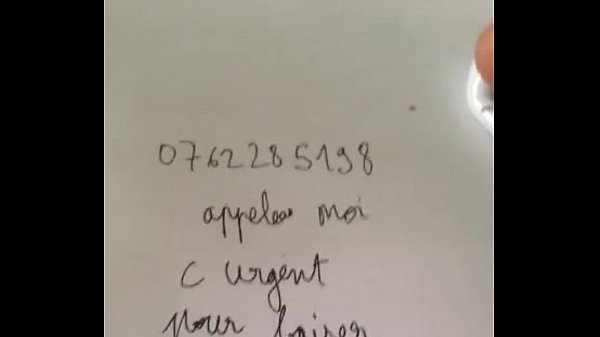 0762285198
appeles moi
c urgent
pour baiser